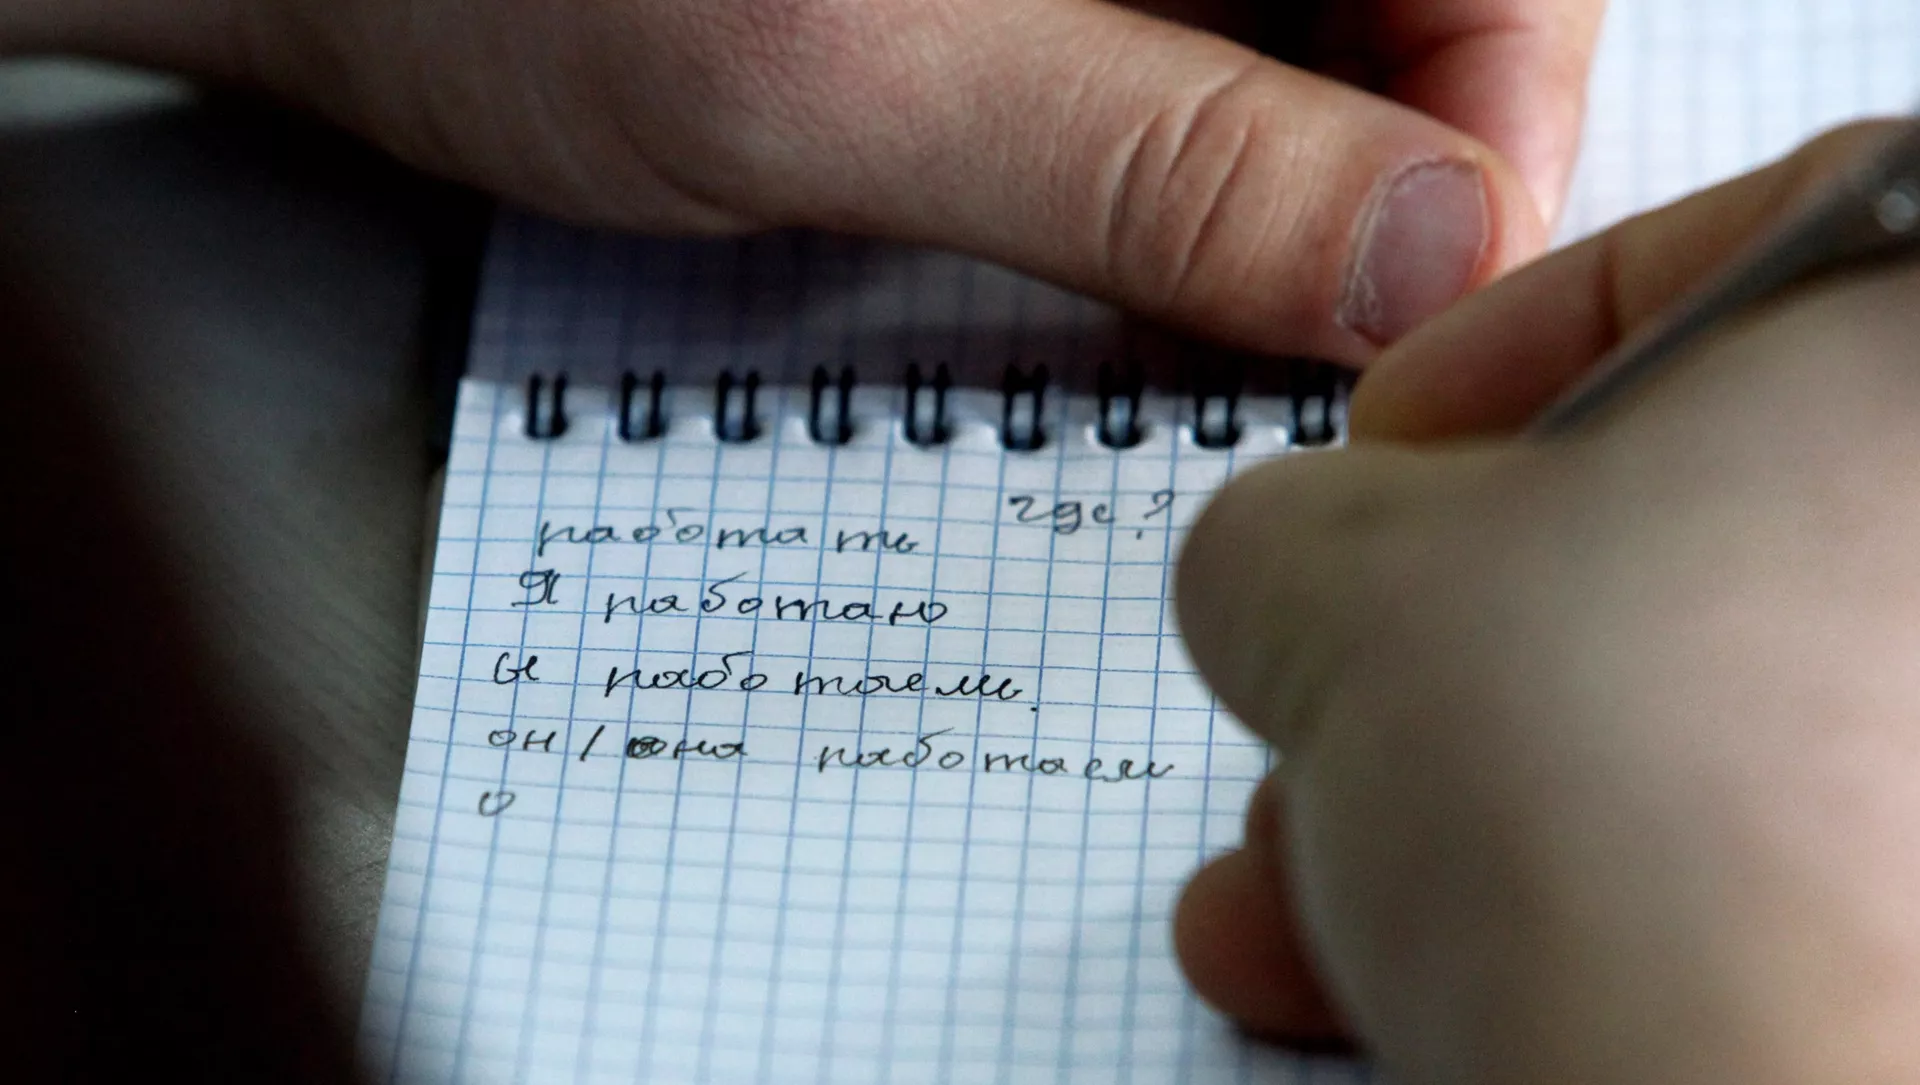 где?
работать
Я работаю
работаемь.
он / она работаем
о